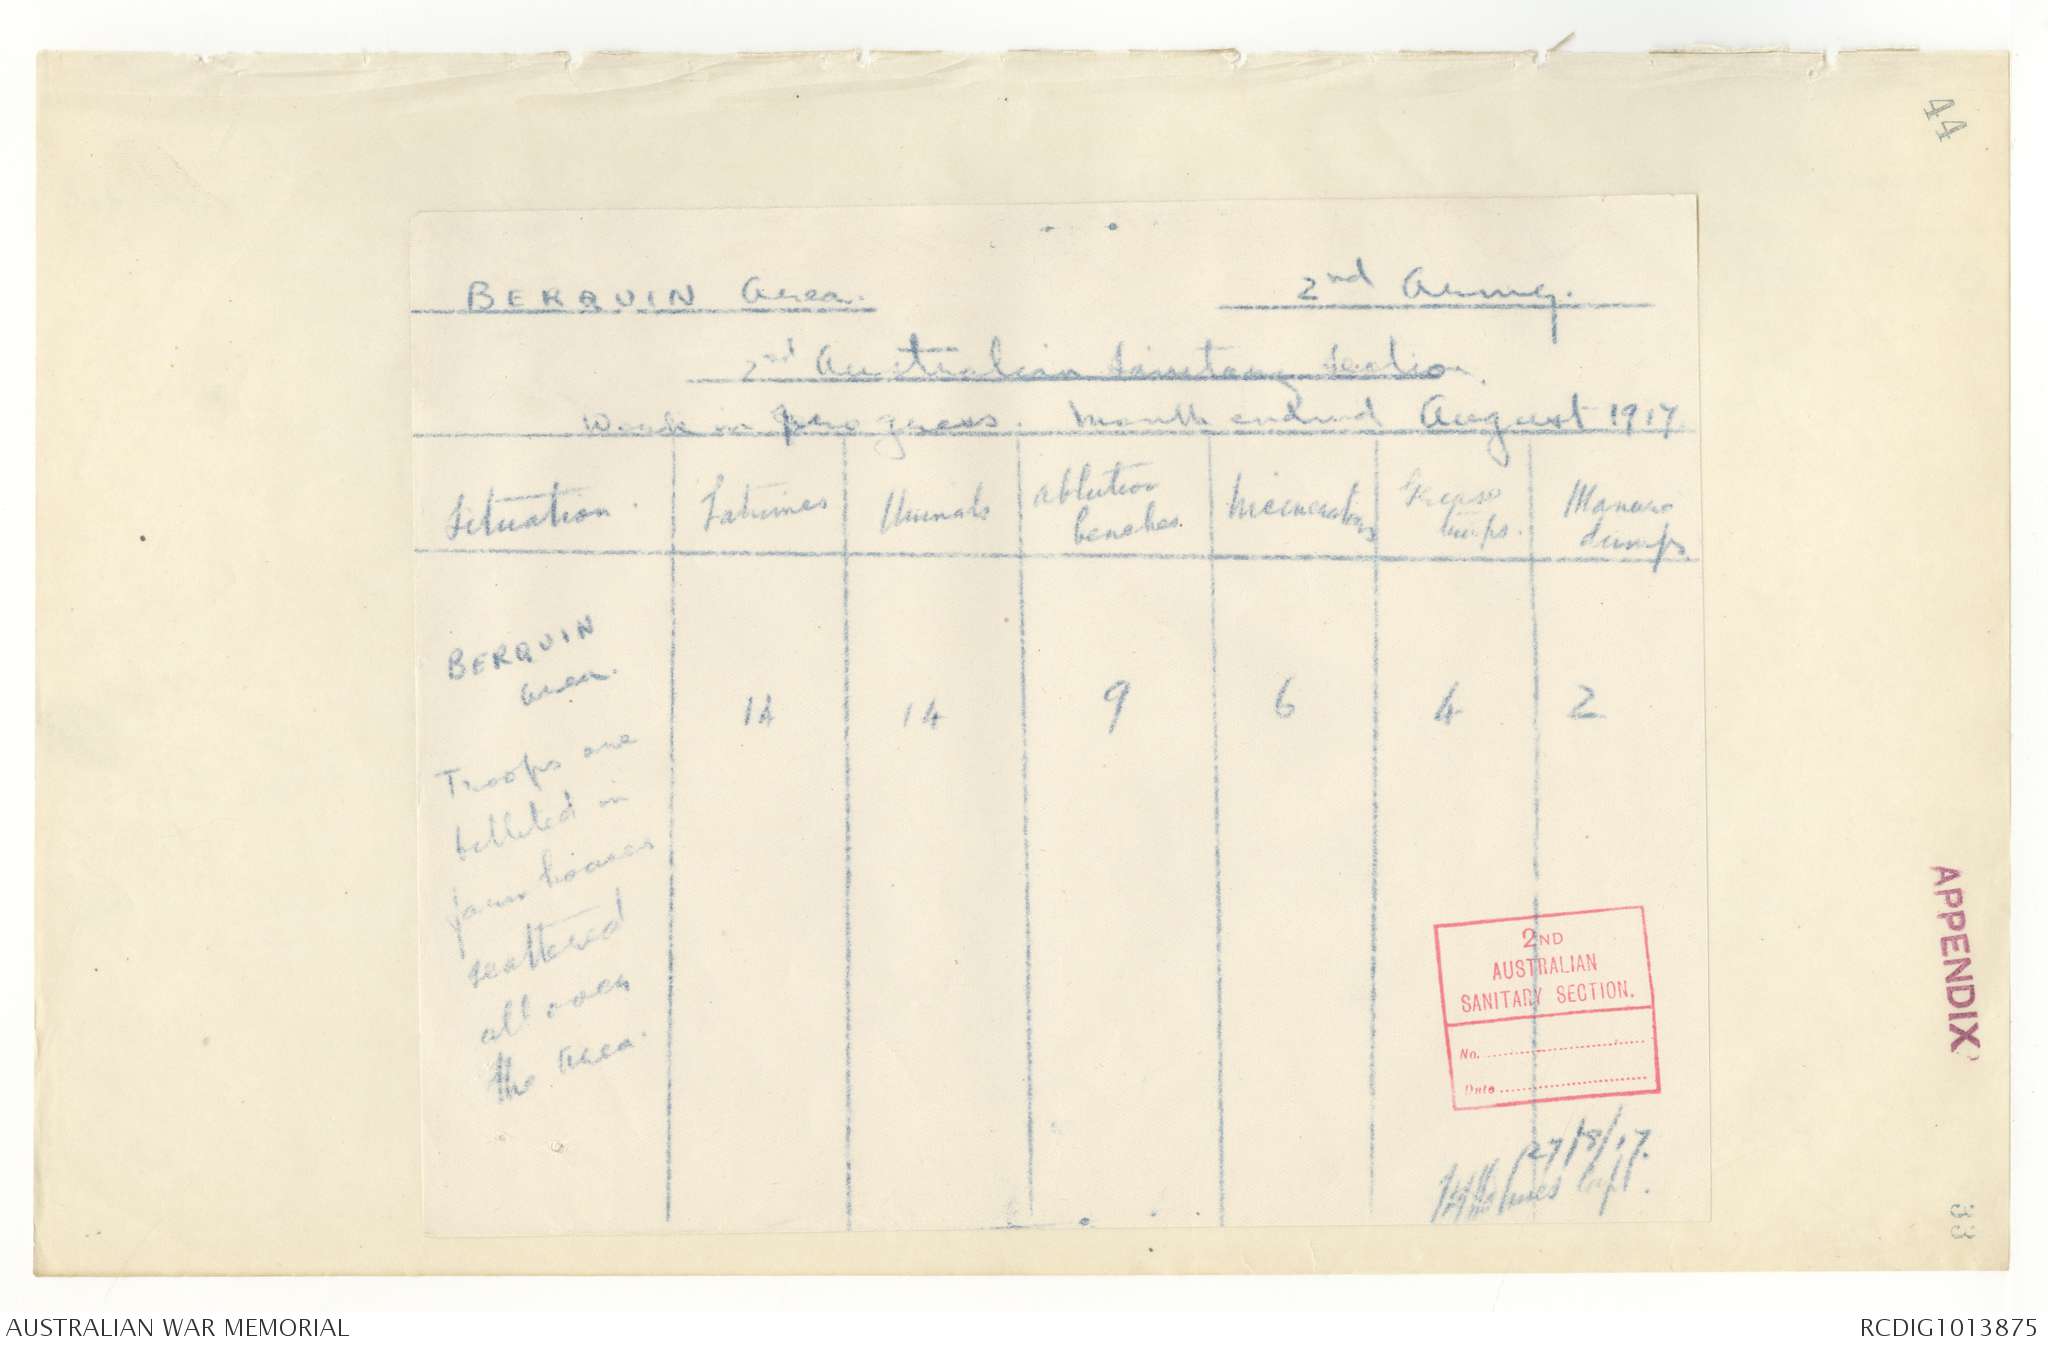 44
BERQUIN Area.
2nd Army.
2nd Australian Sanitary Section.
Work in progress. Month ended August 1917.
Situation. Latrines Urinals Ablution benches. Incinerators Grease Manure dumps.
BERQUIN
area.
14 14 9 6 4 2
Troops are
billeted in
farm houses
scattered
all over
the area.
2ND
AUSTRALIAN
SANITARY SECTION.
No.
Date
27/8/17.
Holmes Capt.
APPENDIX
33
AUSTRALIAN WAR MEMORIAL
RCDIG1013875